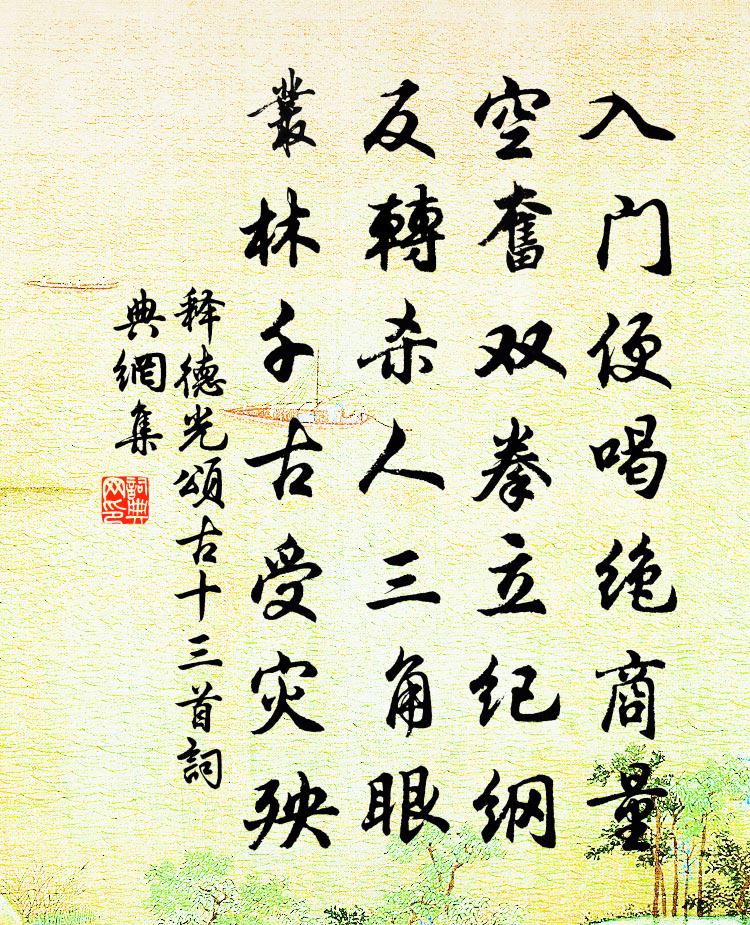 入门便喝绝商量
空奮双拳立纪纲
反轉杀人三角眼
叢林千古受灾殃
释德光頌古十三首詞
典網集
詞典网印